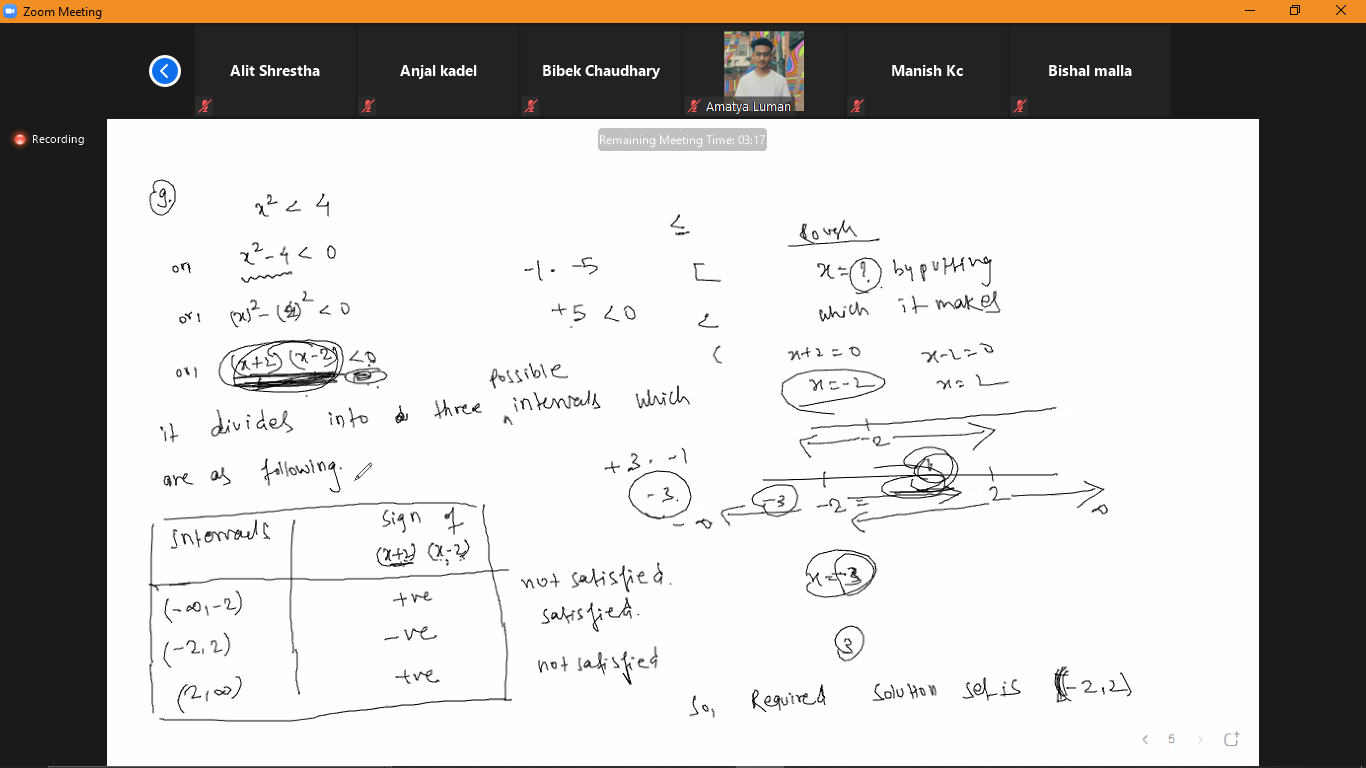 Zoom Meeting
Alit Shrestha
Anjal kadel
Bibek Chaudhary
Amatya Luman
Manish Kc
Bishal malla
Recording
Remaining Meeting Time: 03:17
g.
x² < 4
or, x² - 4 < 0
or, (x)² - (2)² < 0
or, (x+2) (x-2) < 0
it divides into three possible intervals which
are as following.
Intervals
Sign of
(x+2) (x-2)
(-∞,-2) +ve not satisfied.
(-2,2) -ve satisfied.
(2,∞) +ve not satisfied
≤
-1 . -5 [
+5 <0 <
(
+3 . -1
-3.
Rough
x = ? by putting
which it makes
x+2=0 x-2=0
x=-2 x=2
-2
-3 -2 = 2
-∞ ∞
x=-3
3
So, Required solution set is (-2,2)
5